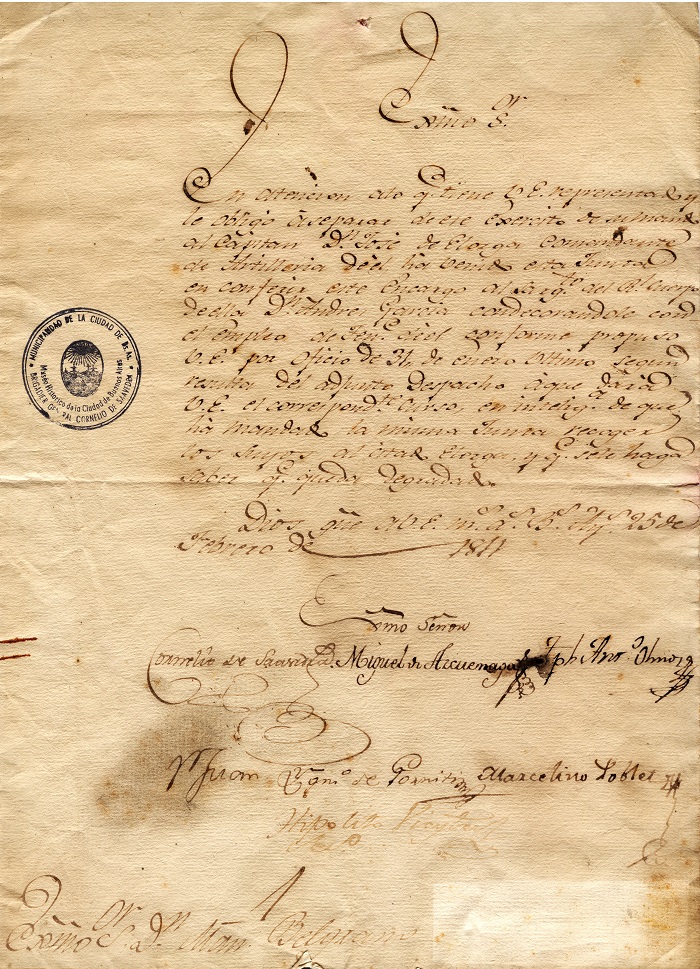 Exmo Sor
En atencion alo q. tiene V.E. representado y
le obligó á separar de ese exercito de su mando
al Capitan Dn. José de Elorga Comandante
de Artilleria de él ha venido esta Junta
en conferir este Encargo al Sargto. del Rl. Cuerpo
de ella Dn. Andres Garcia condecorandole con
el empleo de Tente. de él conforme propuso
V.E. por oficio de 31. de enero Ultimo segun
resulta del adjunto despacho aque dará
V.E. el correspondte. Curso, en inteliga. de que
ha mandado la misma Junta recoger
los suyos al citado Elorga, y q. se le haga
saber q. queda degradado.
Dios gûe a V.E. ms. as. Bs. Ays. 25 de
Febrero de 1811
Exmo Señor
Cornelio de Saavedra Miguel de Azcuenaga Jph Anto. Olmos
Juan Igno. de Gorriti Marcelino Poblet
Hipolito Vieytes
Exmo Sor. Dn. Man Belgrano
MUNICIPALIDAD DE LA CIUDAD DE Bs. As.
Museo Histórico de la Ciudad de Buenos Aires
BRIGADIER GENERAL CORNELIO DE SAAVEDRA